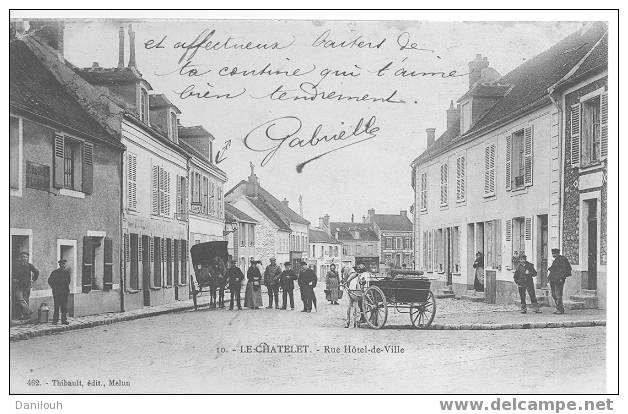 et affectueux baisers de
ta cousine qui t'aime
bien tendrement.
Gabrielle
10. - LE CHATELET. - Rue Hôtel-de-Ville
462. - Thibault, édit., Melun
Danilouh
© www.delcampe.net